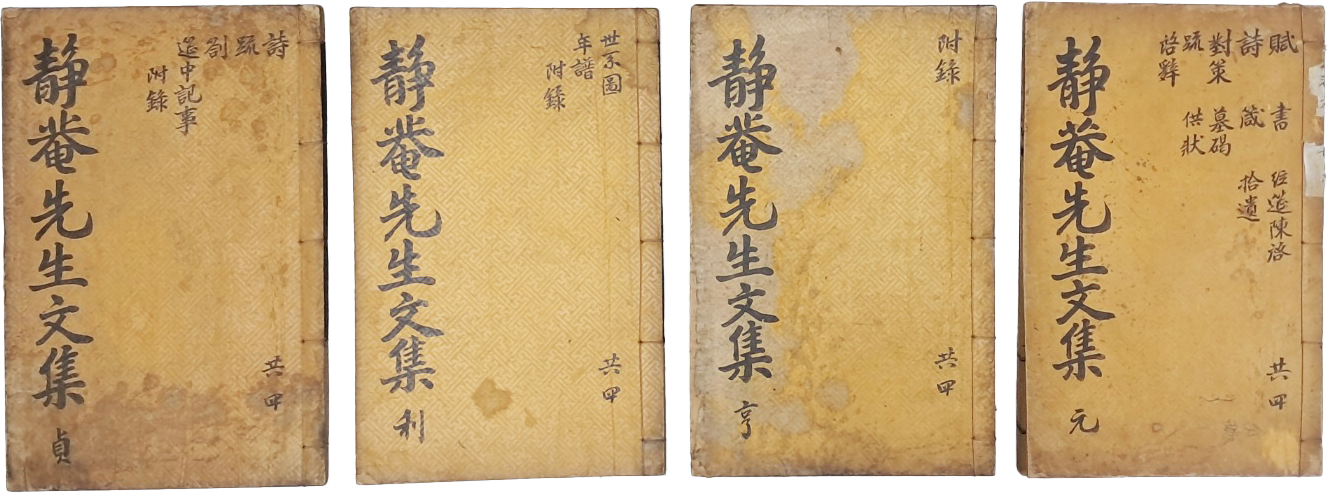 賦 書 經筵陳啓
詩 箴 拾遺
對策 墓碣
疏 供狀
啓辭
共四
靜菴先生文集 元
附錄
共四
靜菴先生文集 亨
世系圖
年譜
附錄
共四
靜菴先生文集 利
詩
疏
劄
筵中記事
附錄
共四
靜菴先生文集 貞